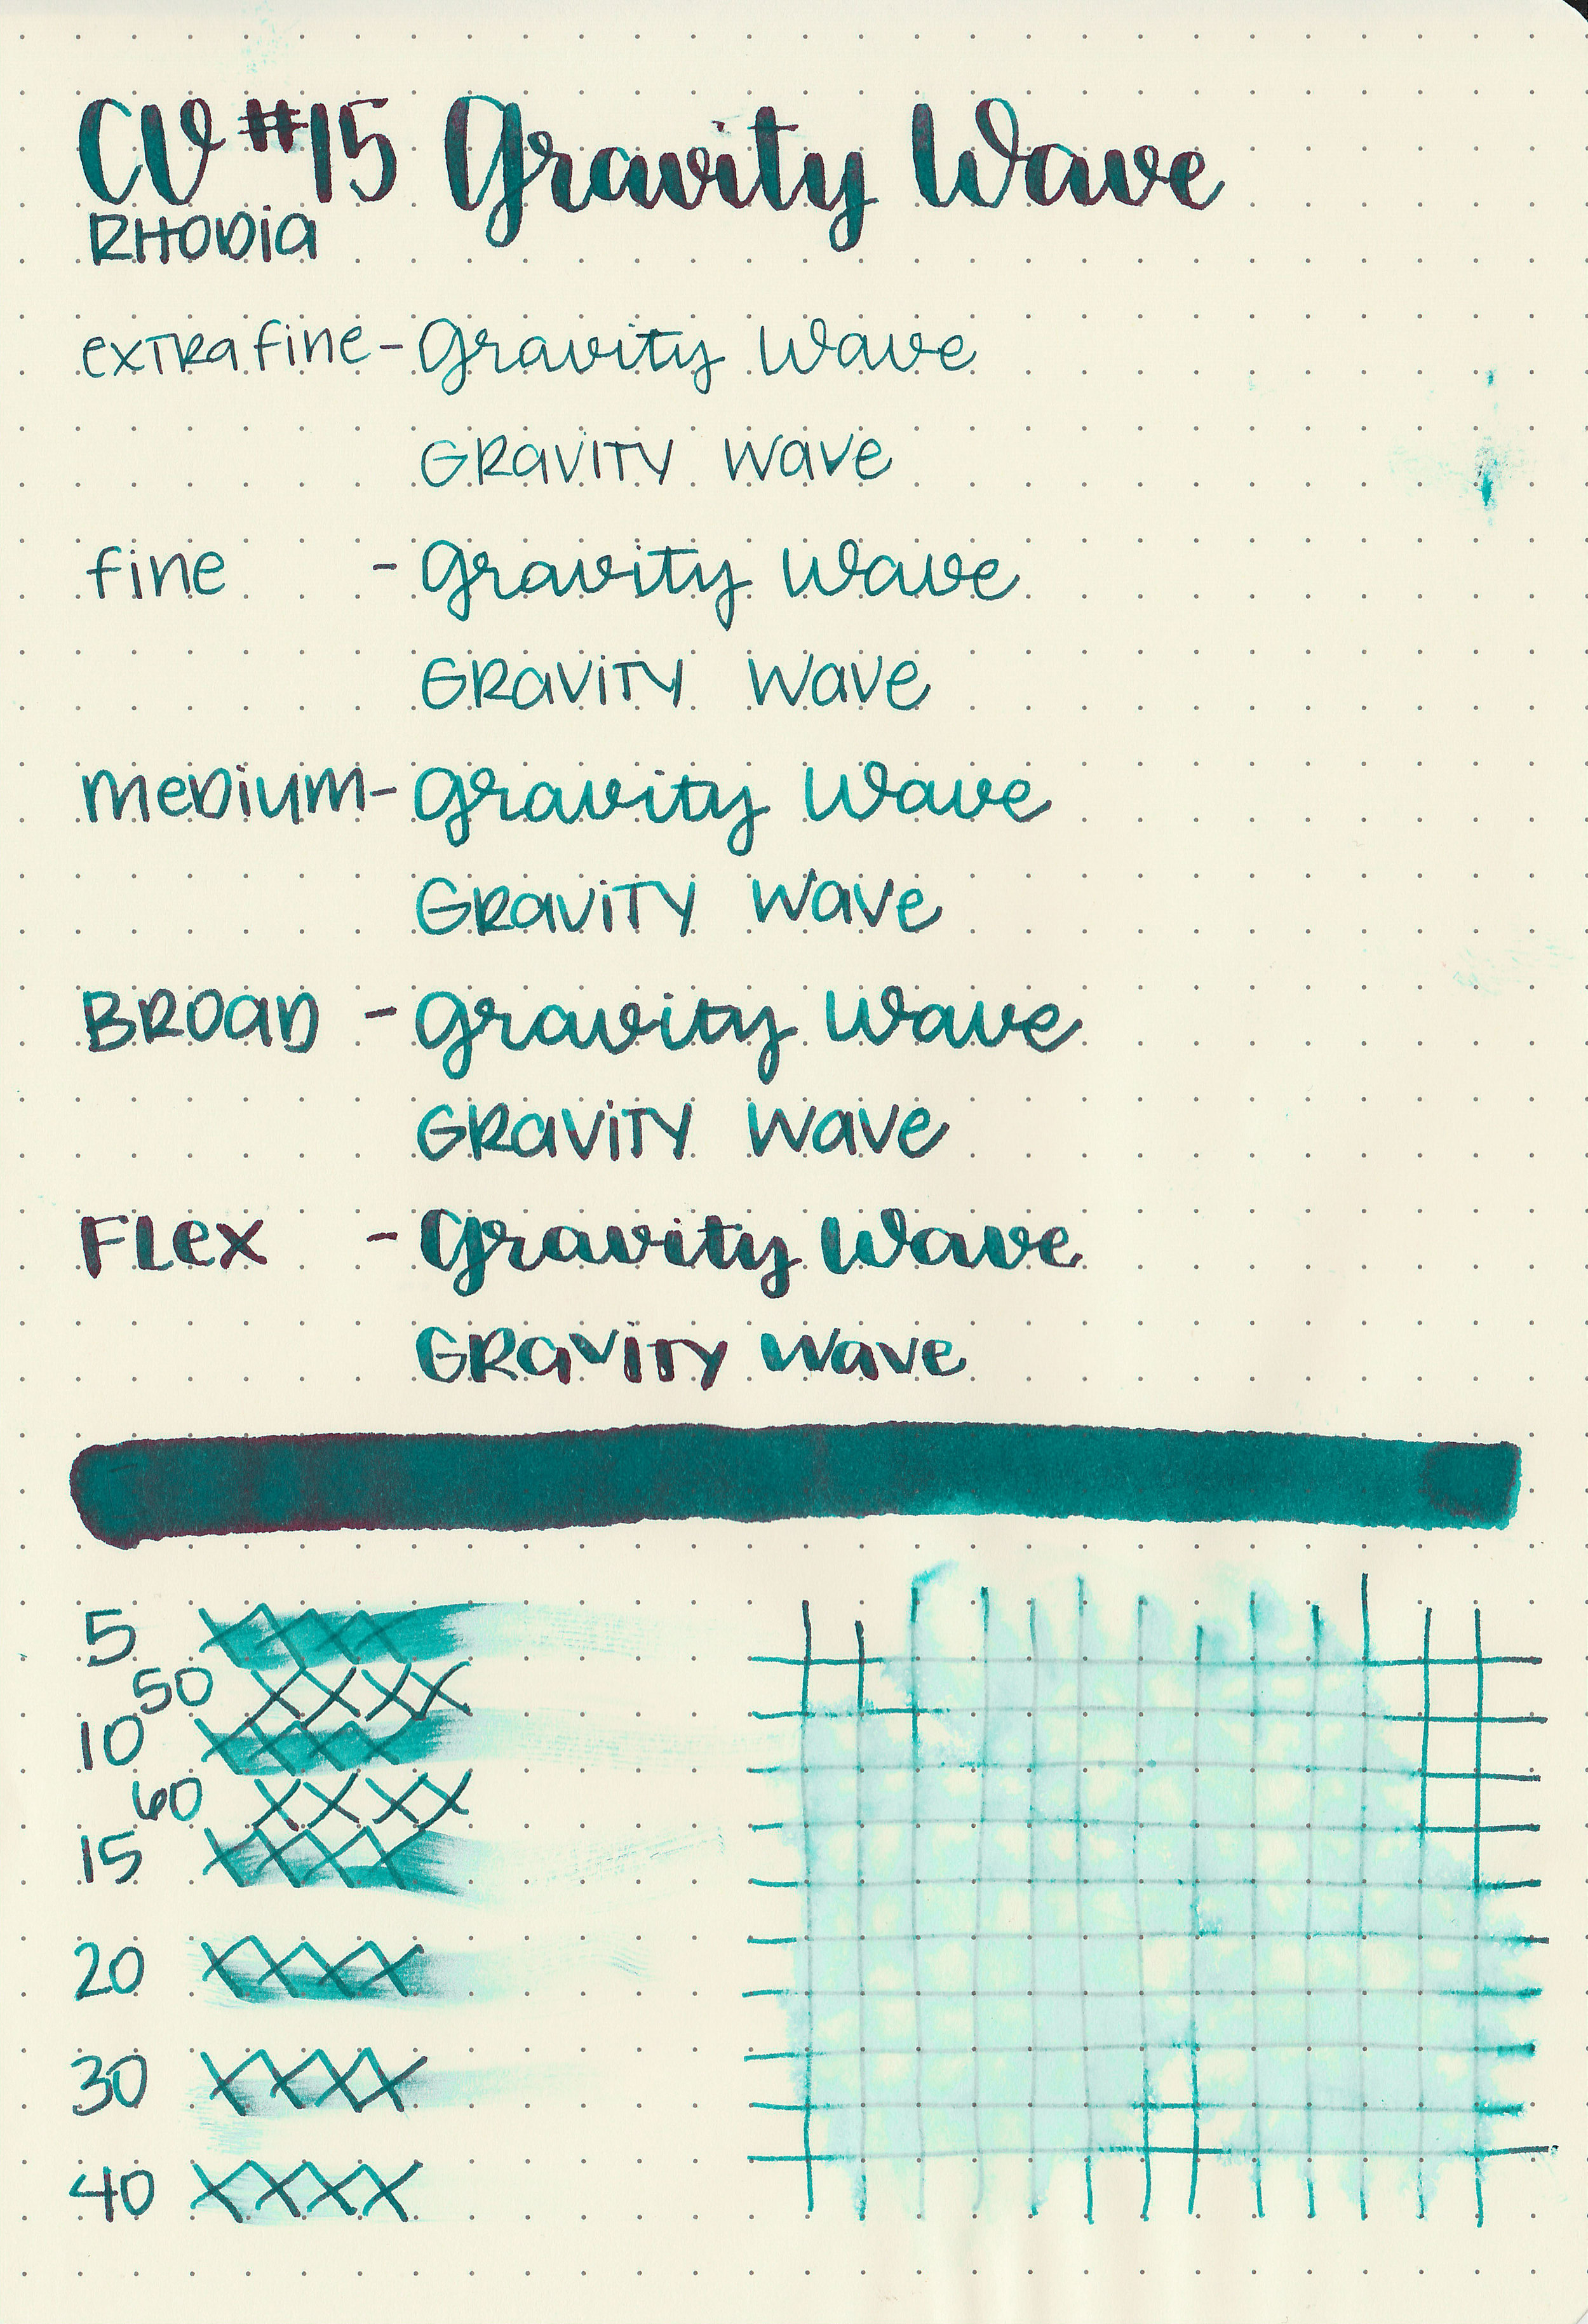 CV #15 Gravity Wave
RHODia
exTRa fine - Gravity Wave
GRaViTY Wave
fine - Gravity Wave
GRaViTY Wave
meDium - Gravity Wave
GRaViTY Wave
BROaD - Gravity Wave
GRaViTY Wave
FLex - Gravity Wave
GRaViTY Wave
5
50
10
60
15
20
30
40